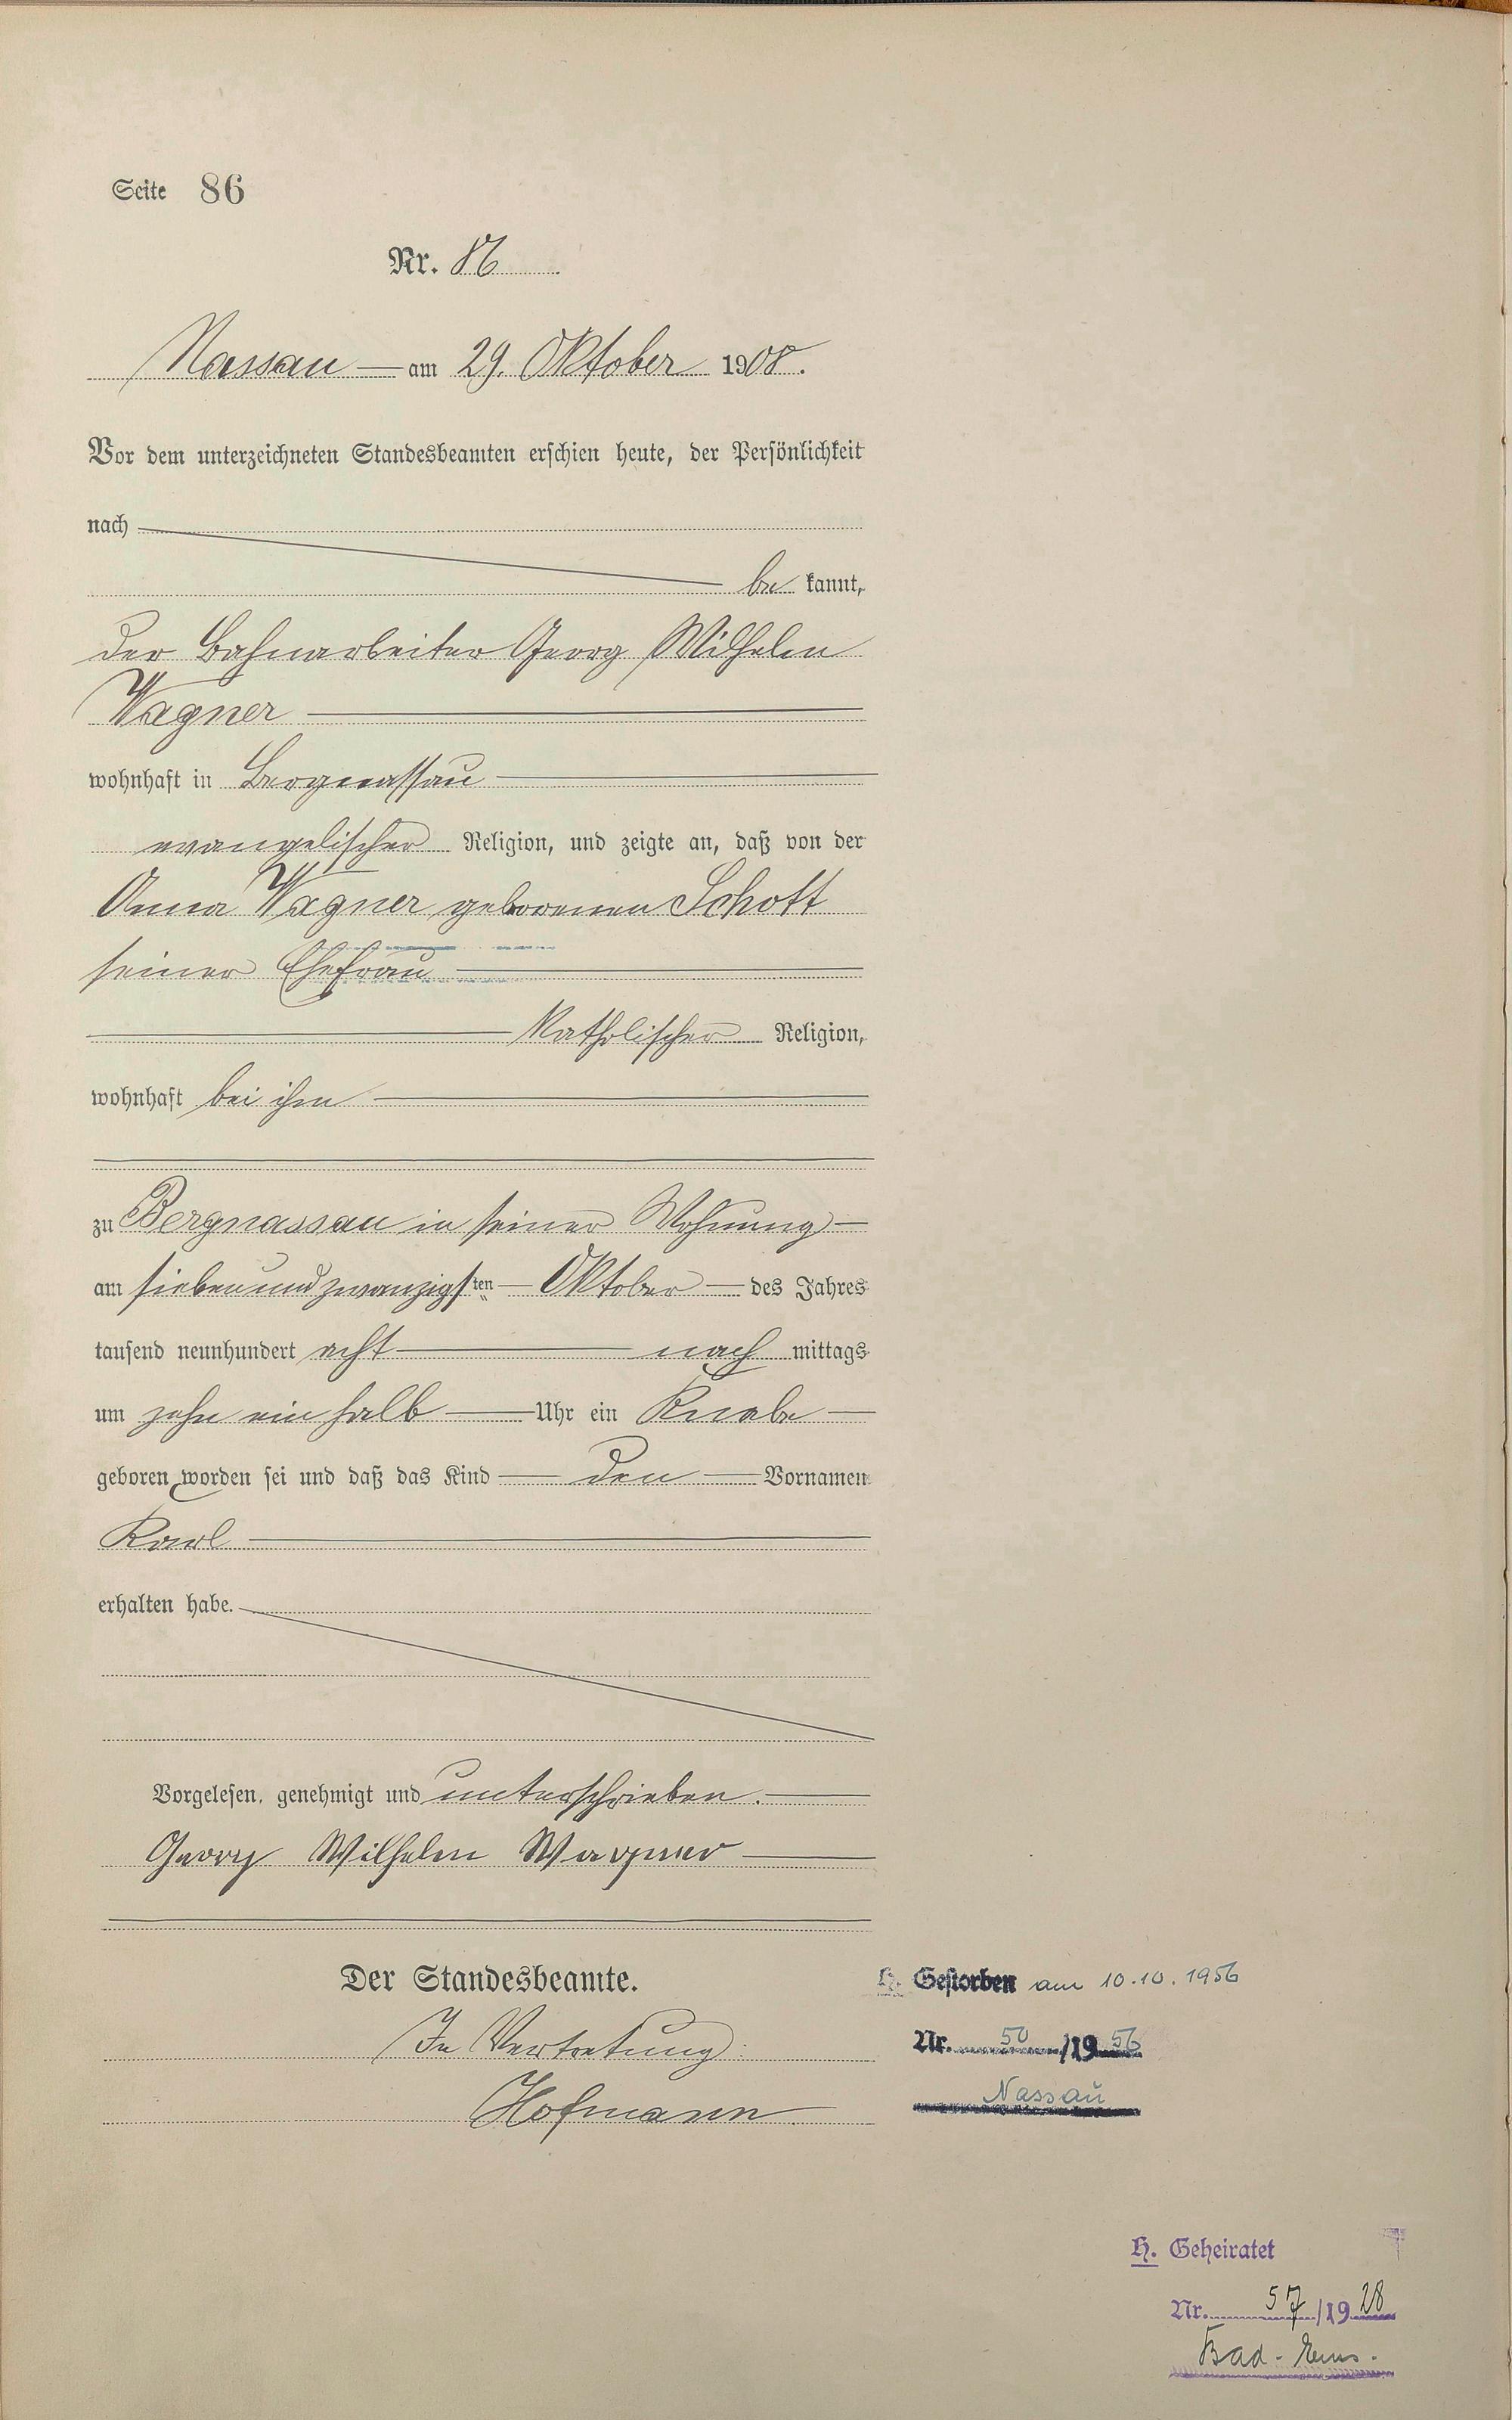 Seite 86
Nr. 86
Nassau am 29. Oktober 1908.
Vor dem unterzeichneten Standesbeamten erschien heute, der Persönlichkeit
nach
be kannt,
der Bahnarbeiter Georg Wilhelm
Wagner
wohnhaft in Bergnassau
evangelischer Religion, und zeigte an, daß von der
Anna Wagner geborenen Schott
seiner Ehefrau
katholischer Religion,
wohnhaft bei ihm
zu Bergnassau in seiner Wohnung
am siebenundzwanzigsten Oktober des Jahres
tausend neunhundert acht nach mittags
um zehn ein halb Uhr ein Knabe
geboren worden sei und daß das Kind den Vornamen
Karl
erhalten habe.
Vorgelesen, genehmigt und unterschrieben.
Georg Wilhelm Wagner
Der Standesbeamte.
In Vertretung:
Hofmann
H. Gestorben am 10.10.1956
Nr. 50/1956
Nassau
H. Geheiratet
Nr. 57/1928
Bad-Ems.